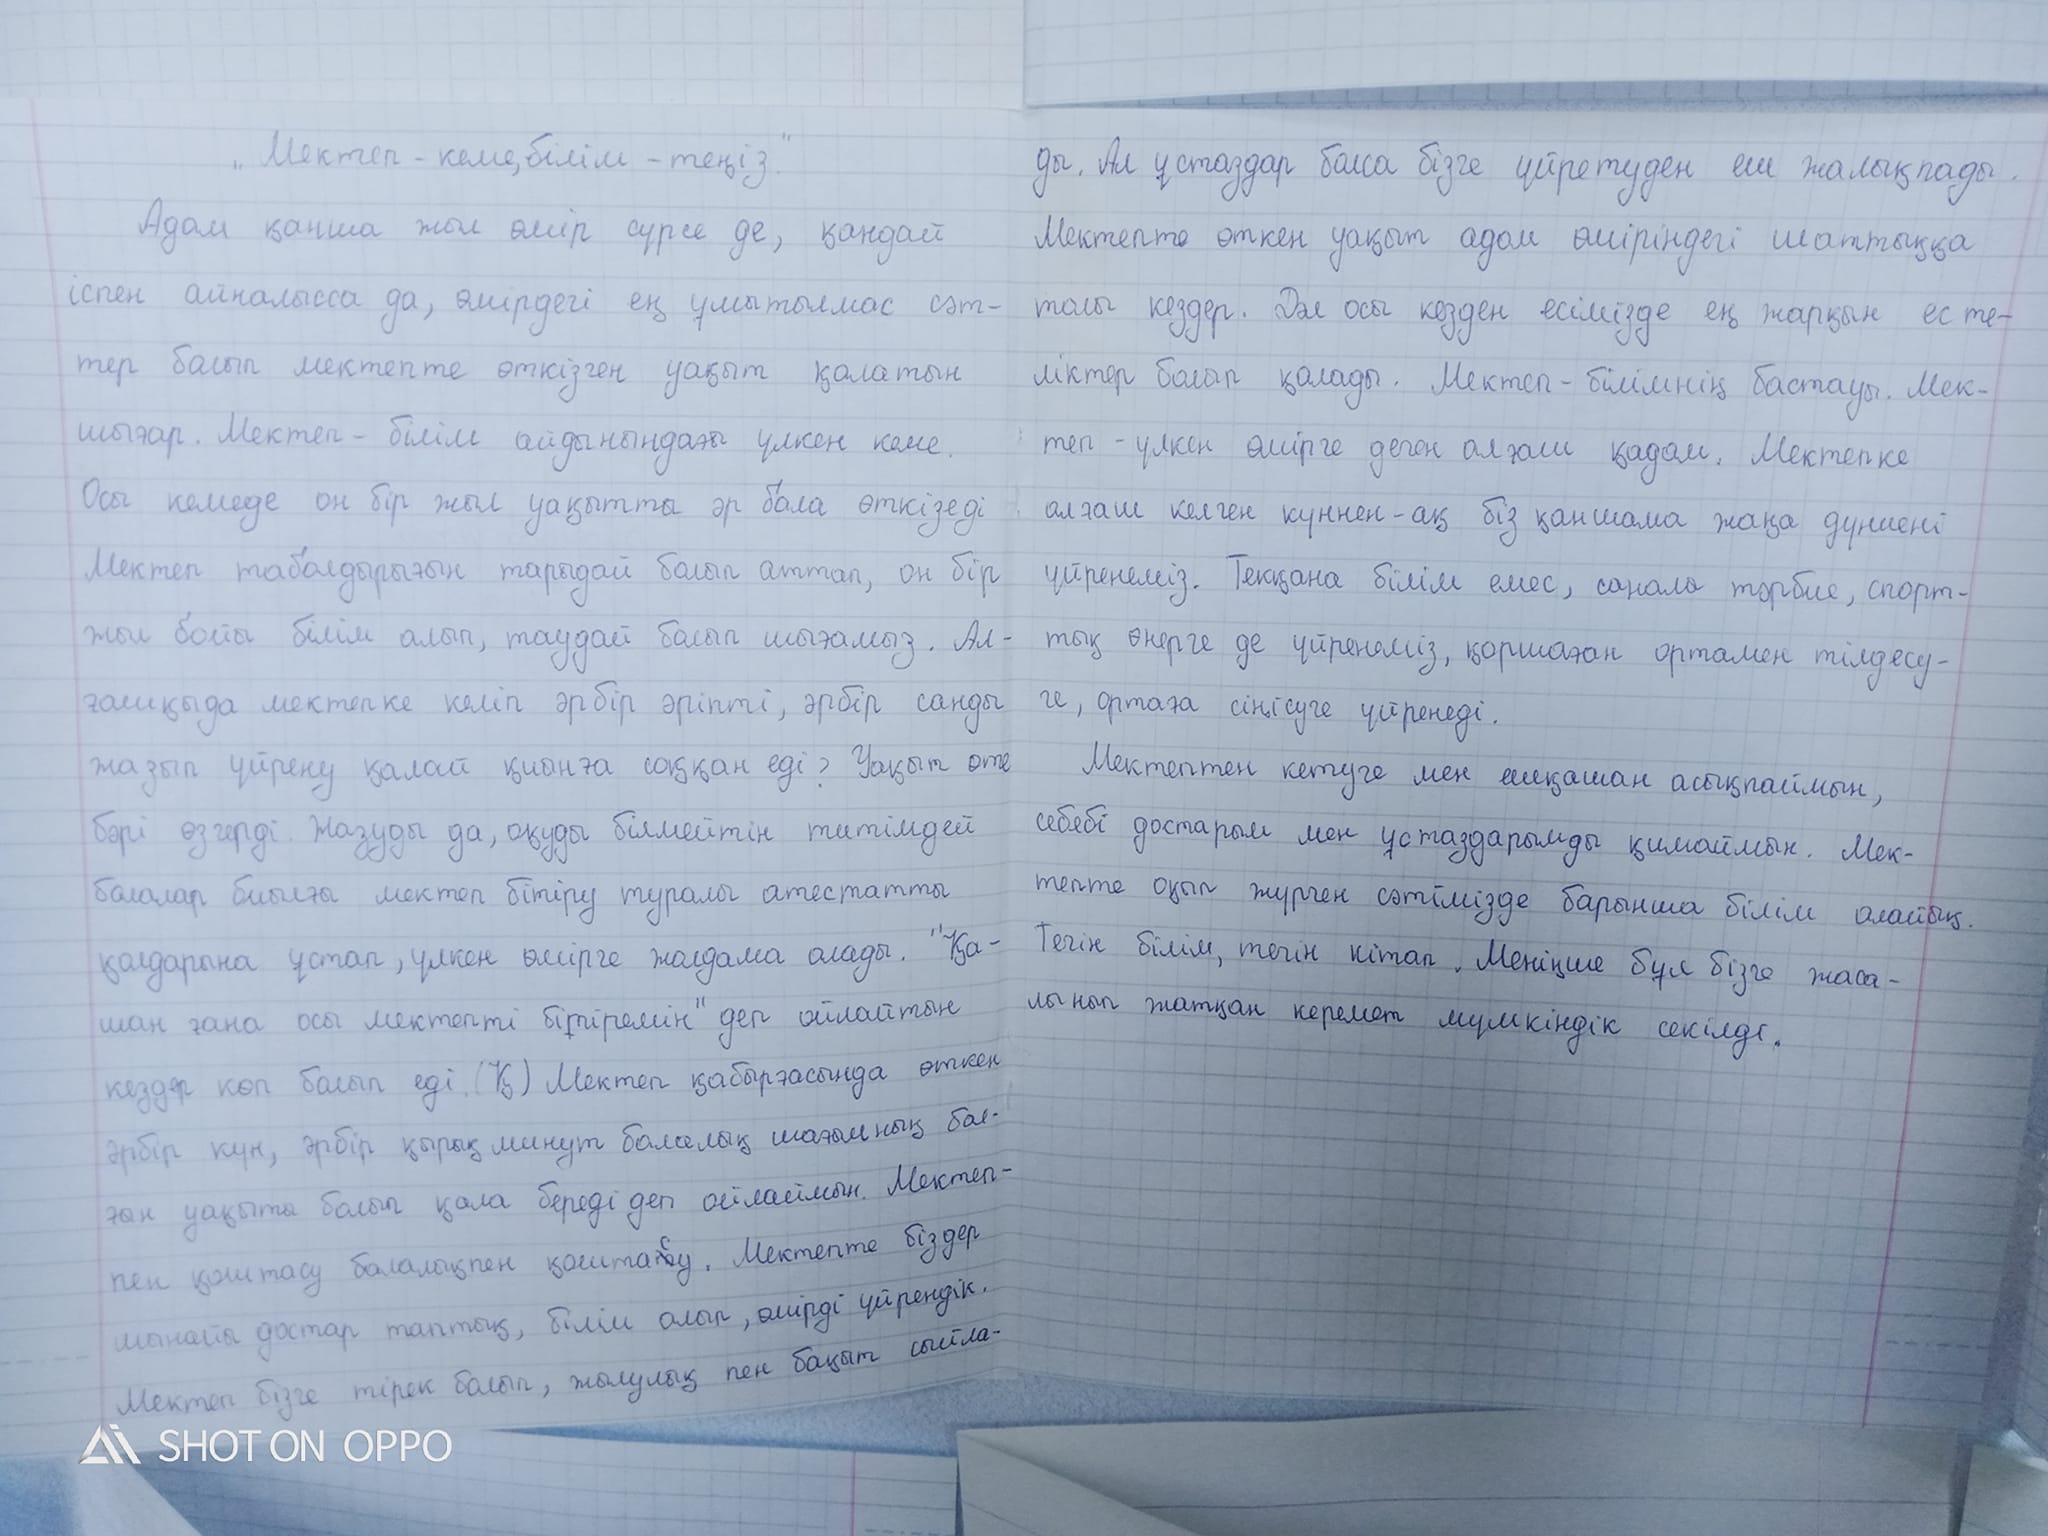 „Мектеп - кеме, білім - теңіз."
Адам қанша жыл өмір сүрсе де, қандай
іспен айналысса да, өмірдегі ең ұмытылмас сәт-
тер болып мектепте өткізген уақыт қалатын
шығар. Мектеп - білім айдынындағы үлкен кеме.
Осы кемеде он бір жыл уақытта әр бала өткізеді
Мектеп табалдырығын тарыдай болып аттап, он бір
жыл бойы білім алып, таудай болып шығамыз. Ал-
ғашқыда мектепке келіп әрбір әріпті, әрбір санды
жазып үйрену қалай қиынға соққан еді? Уақыт өте
бәрі өзгерді. Жазуды да, оқуды білмейтін титімдей
балалар биылғы мектеп бітіру туралы атестатты
қолдарына ұстап, үлкен өмірге жолдама алады. "Қа-
шан ғана осы мектепті бітіремін" деп ойлайтын
кездер көп болып еді. (Қ) Мектеп қабырғасында өткен
әрбір күн, әрбір қырық минут балалық шағымның бал-
ғын уақыты болып қала береді деп ойлаймын. Мектеп-
пен қоштасу балалықпен қоштасу. Мектепте біздер
шынайы достар таптық, білім алып, өмірді үйрендік.
Мектеп бізге тірек болып, жылулық пен бақыт сыйла-
ды. Ал ұстаздар болса бізге үйретуден еш жалықпады.
Мектепте өткен уақыт адам өміріндегі шаттыққа
толы кездер. Дәл осы кезден есімізде ең жарқын есте-
ліктер болып қалады. Мектеп - білімнің бастауы. Мек-
теп - үлкен өмірге деген алғаш қадам. Мектепке
алғаш келген күннен-ақ біз қаншама жаңа дүниені
үйренеміз. Текқана білім емес, саналы тәрбие, спорт-
тық өнерге де үйренеміз, қоршаған ортамен тілдесу-
ге, ортаға сіңісуге үйренеді.
Мектептен кетуге мен ешқашан асықпаймын,
себебі достарым мен ұстаздарымды қимаймын. Мек-
тепте оқып жүрген сәтімізде барынша білім алайық.
Тегін білім, тегін кітап. Меніңше бұл бізге жаса-
лынып жатқан керемет мүмкіндік секілді.
SHOT ON OPPO